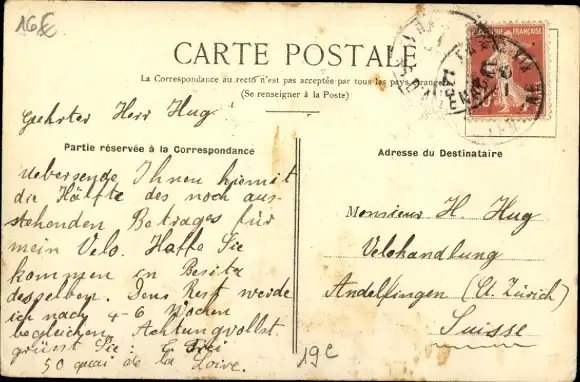 16€
CARTE POSTALE
La Correspondance au recto n'est pas acceptée par tous les pays étrangers
(Se renseigner à la Poste)
Geehrter Herr Hug!
Partie réservée à la Correspondance
Uebersende Ihnen hiemit
die Hälfte des noch aus-
stehenden Betrages für
mein Velo. Hoffe Sie
kommen in Besitz
desselben. Dens Rest werde
ich nach 4-6 Wochen
begleichen. Achtungvollst
grüsst Sie: E.
50 quai de la Loire.
Adresse du Destinataire
Monsieur H. Hug
Velohandlung
Andelfingen (Ct. Zürich)
Suisse
19e